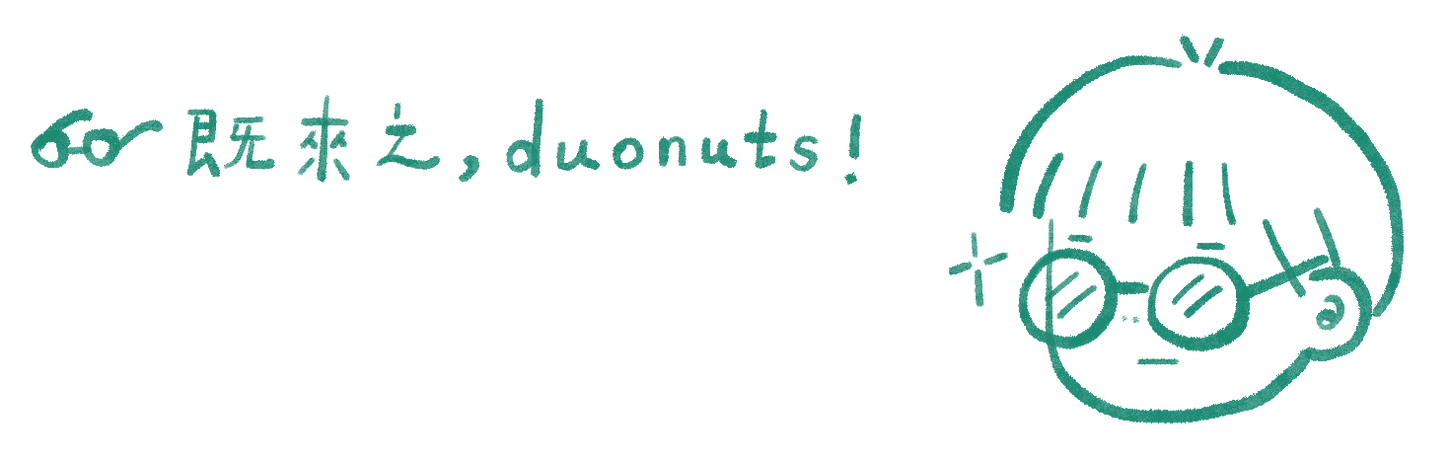 既來之, duonuts!